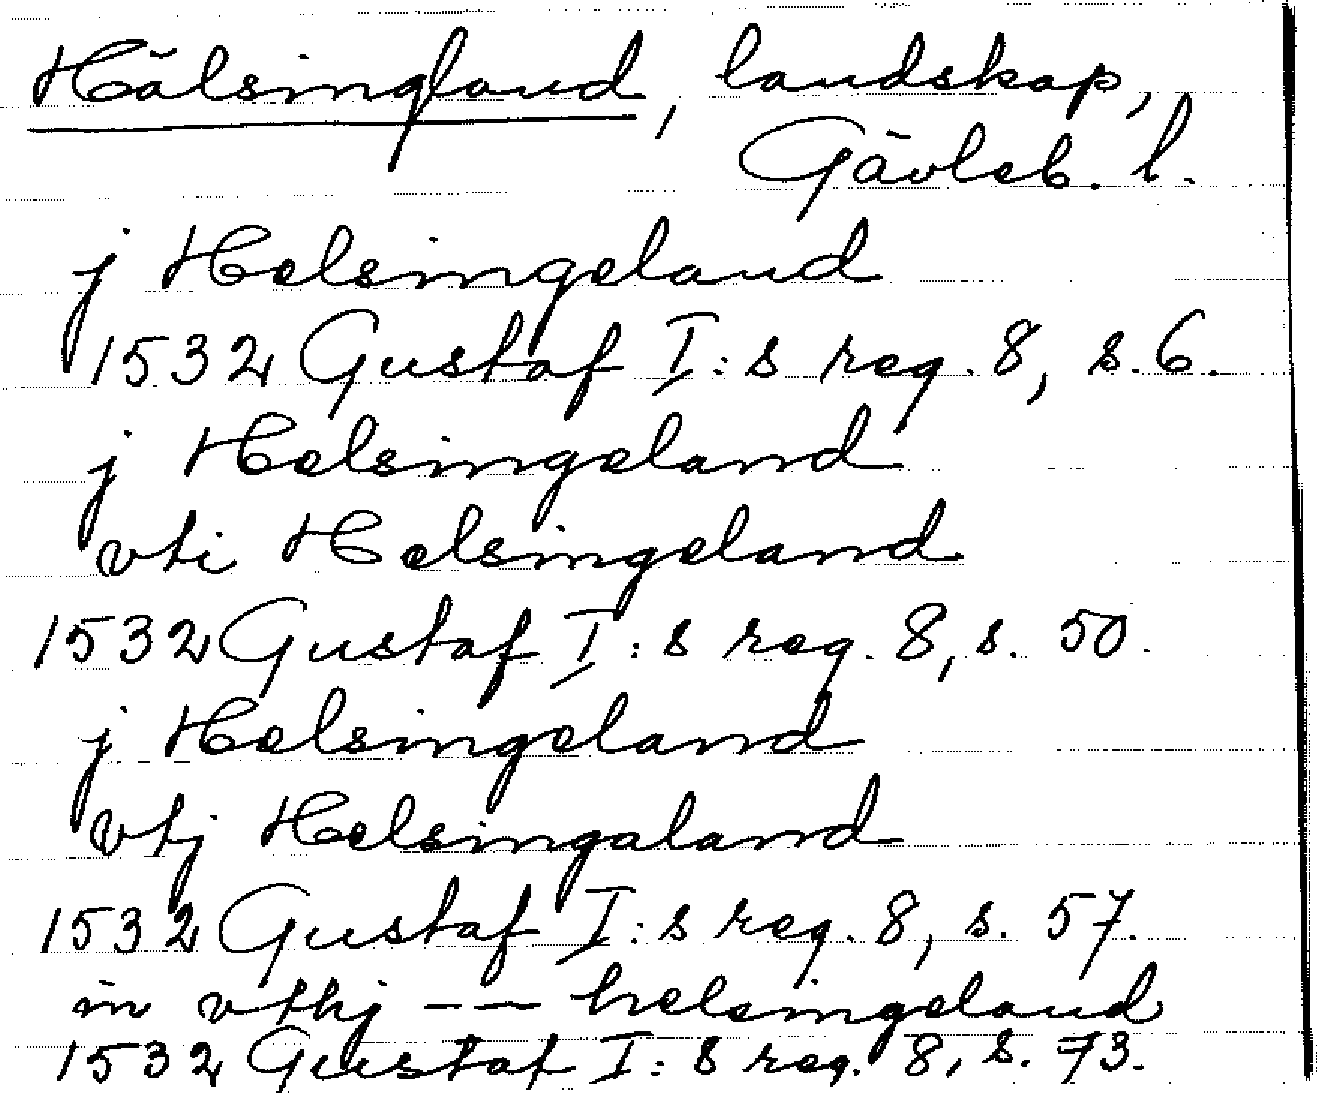 Hälsingland, landskap,
Gävleb. l.
j Helsingeland
1532 Gustaf I:s reg. 8, s. 6.
j Helsingeland
vti Helsingeland
1532 Gustaf I:s reg. 8, s. 50.
j Helsingeland
vtj Helsingaland
1532 Gustaf I:s reg. 8, s. 57.
in vthj --- helsingeland
1532 Gustaf I:s reg. 8, s. 73.